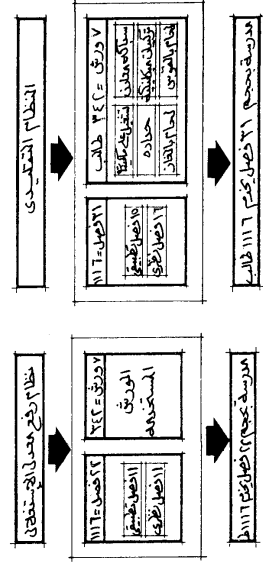 النظام التقليدى
٧ ورش = ٣٤٢ طالب
سباكة معادن
تركيبات ميكانيكية
لحام بالقوس
تشغيل على ماكينة
حداده
لحام بالغاز
٣١ فصل = ١١١٦
١٥ فصل تطبيقى
١٦ فصل نظرى
مدرسة بحجم ٣١ فصل يخدم ١١١٦ طالب
نظام رفع معدل الإستغلال
٧ ورش = ٣٤٢
الورش
المستخدمه
٢٢ فصل = ١١١٦
١١ فصل تطبيقى
١١ فصل نظرى
مدرسة بحجم ٢٢ فصل يخدم ١١١٦ ط